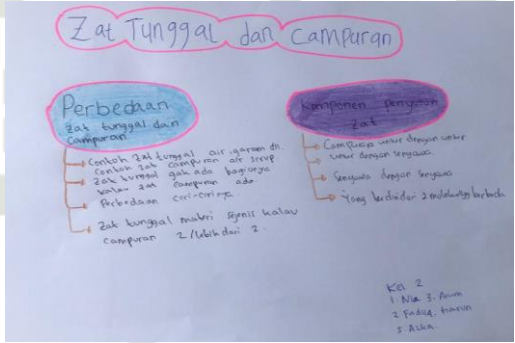 Zat Tunggal dan Campuran
Perbedaan
zat tunggal dan
campuran
Contoh zat tunggal air, garam dll.
contoh zat campuran air sirup
Zat tunggal gak ada baginya
kalau zat campuran ada
Perbedaan ciri-cirinya
Zat tunggal materi sejenis kalau
campuran 2/lebih dari 2.
Komponen penyusun
zat
Campuran unsur dengan unsur
unsur dengan senyawa
Senyawa dengan senyawa
Yang terdiri dari 2 berbeda
Kel 2
1. Nia 3. Arum
2. Fadil 4. Harun
5 Azka.